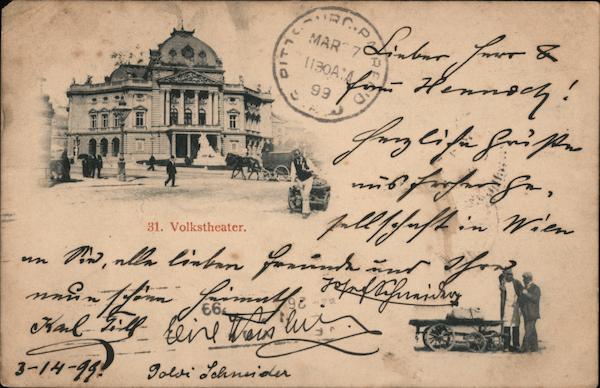 PITTSBURG, PA. REC'D
MAR 7
1130AM
99
Lieber Herr &
Frau Hennoch!
Herzliche Grüße
aus froher Ge-
sellschaft in Wien
31. Volkstheater.
an Sie, alle lieben Freunde und Ihre
neue schöne Heimath
Josef Schneider
Karl
99
3-14-99.
Poldi Schneider